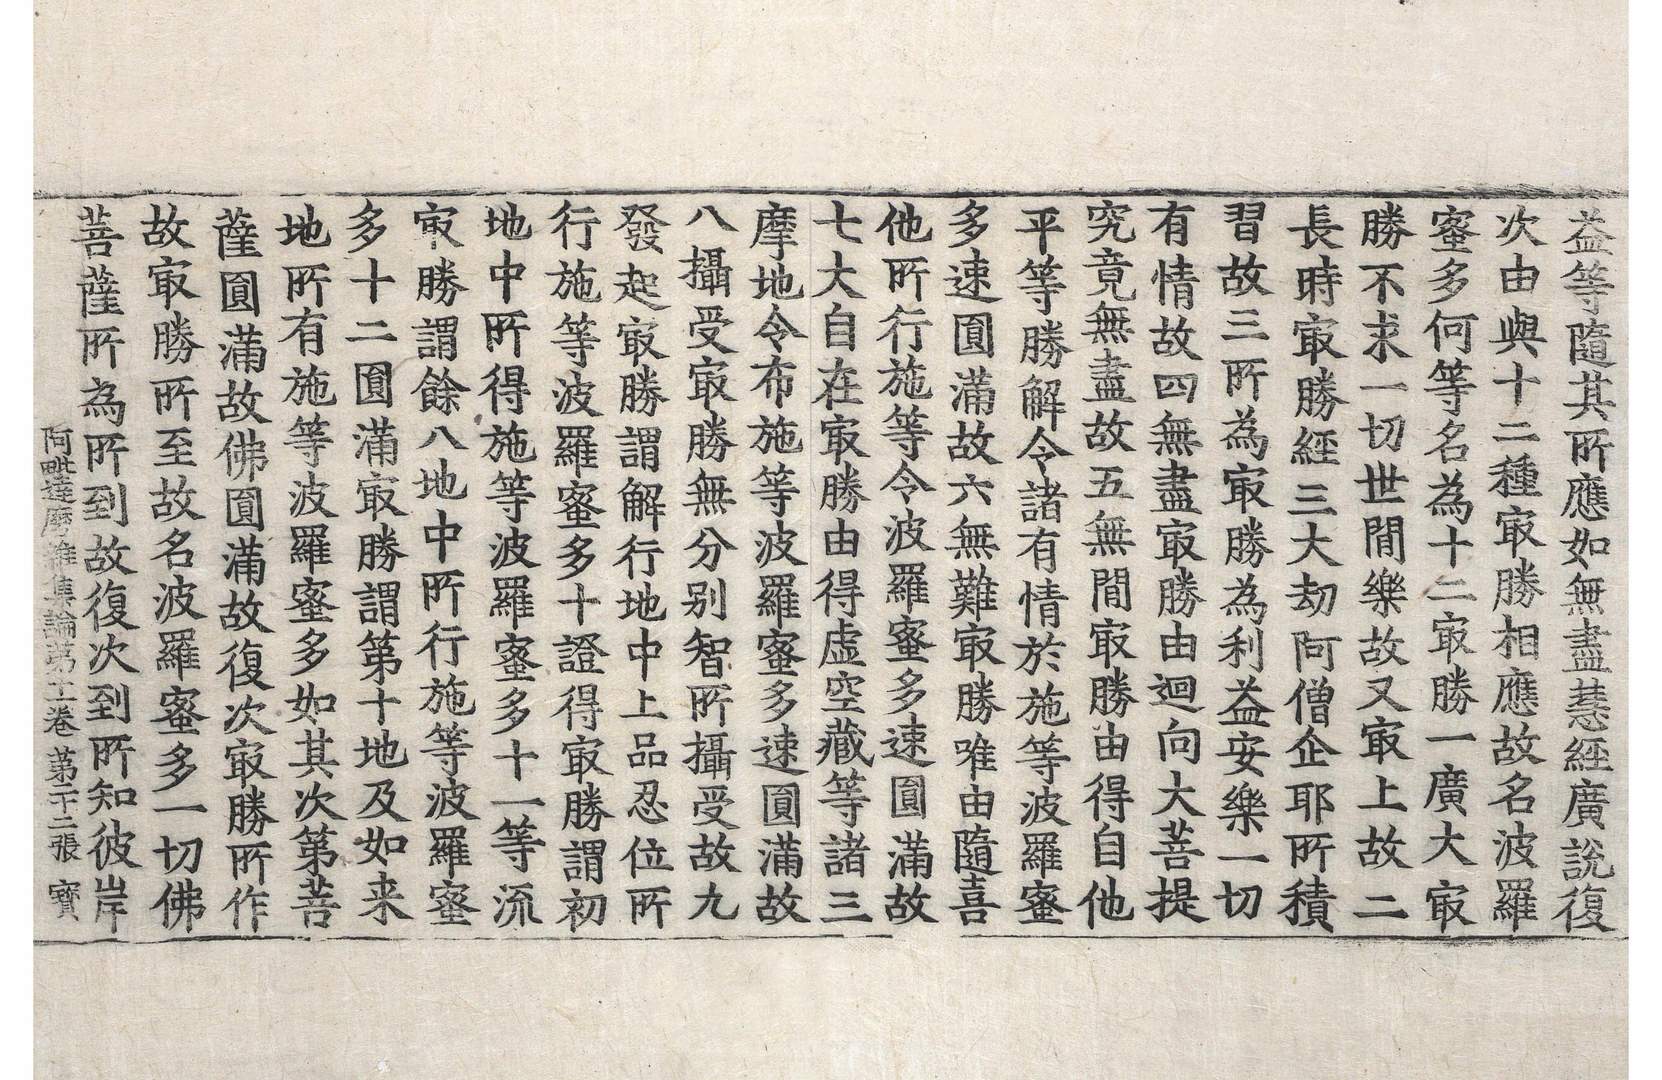 益等隨其所應如無盡慧經廣說復
次由與十二種㝡勝相應故名波羅
蜜多何等名為十二㝡勝一廣大㝡
勝不求一切世間樂故又㝡上故二
長時㝡勝經三大劫阿僧企耶所積
習故三所為㝡勝為利益安樂一切
有情故四無盡㝡勝由迴向大菩提
究竟無盡故五無間㝡勝由得自他
平等勝解令諸有情於施等波羅蜜
多速圓滿故六無難㝡勝唯由隨喜
他所行施等令波羅蜜多速圓滿故
七大自在㝡勝由得虛空藏等諸三
摩地令布施等波羅蜜多速圓滿故
八攝受㝡勝無分别智所攝受故九
發起㝡勝謂解行地中上品忍位所
行施等波羅蜜多十證得㝡勝謂初
地中所得施等波羅蜜多十一等流
㝡勝謂餘八地中所行施等波羅蜜
多十二圓滿㝡勝謂第十地及如来
地所有施等波羅蜜多如其次第菩
薩圓滿故佛圓滿故復次㝡勝所作
故㝡勝所至故名波羅蜜多一切佛
菩薩所為所到故復次到所知彼岸
阿毗達磨雜集論第十二卷 第二十二張 寳